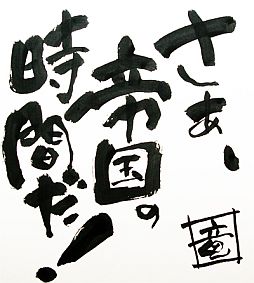 さぁ、
帝国の
時間だ!
竜